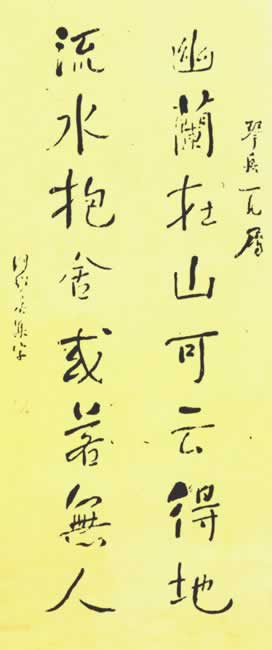 幽蘭在山可云得地
流水抱舍或若無人